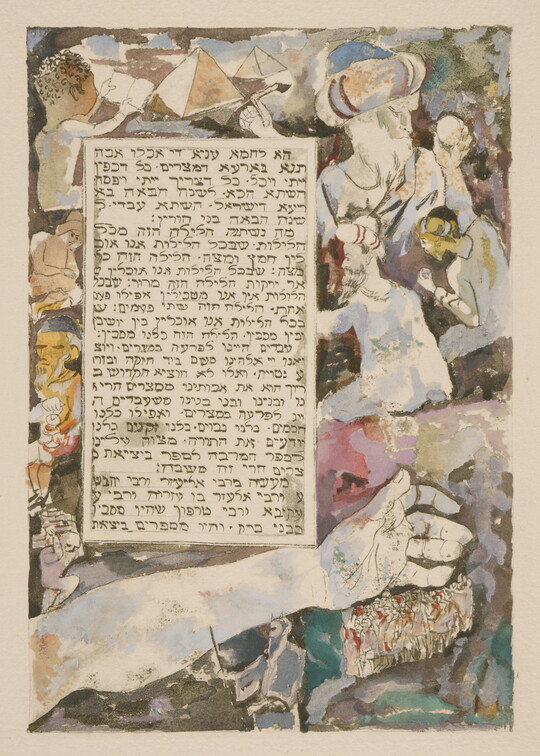 הא לחמא עניא די אכלו אבה
תנא בארעא דמצרים. כל דכפין
ייתי ויכל. כל דצריך ייתי ויפסח
השתא הכא. לשנה הבאה בא
רעא דישראל. השתא עבדי. ל
שנה הבאה בני חורין:
מה נשתנה הלילה הזה מכל
הלילות. שבכל הלילות אנו אוכ
לין חמץ ומצה. הלילה הזה כל
מצה: שבכל הלילות אנו אוכלין ש
אר ירקות הלילה הזה מרור: שבכל
הלילות אין אנו מטבילין אפילו פעם
אחת. הלילה הזה שתי פעמים: ש
בכל הלילות אנו אוכלין בין יושבין
ובין מסבין. הלילה הזה כלנו מסבין:
עבדים היינו לפרעה במצרים. ויוצ
יאנו יי אלהינו משם ביד חזקה ובזרו
ע נטויה. ואלו לא הוציא הקדוש ב
רוך הוא את אבותינו ממצרים הרי א
נו ובנינו ובני בנינו משעבדים ה
יינו לפרעה במצרים. ואפילו כלנו
חכמים. כלנו נבונים. כלנו זקנים כלנו
יודעים את התורה. מצוה עלינו
לספר המרבה לספר ביציאת מ
צרים הרי זה משבח:
מעשה ברבי אליעזר ורבי יהוש
ע ורבי אלעזר בן עזריה ורבי ע
קיבא ורבי טרפון שהיו מסבין
בבני ברק. והיו מספרים ביציאת